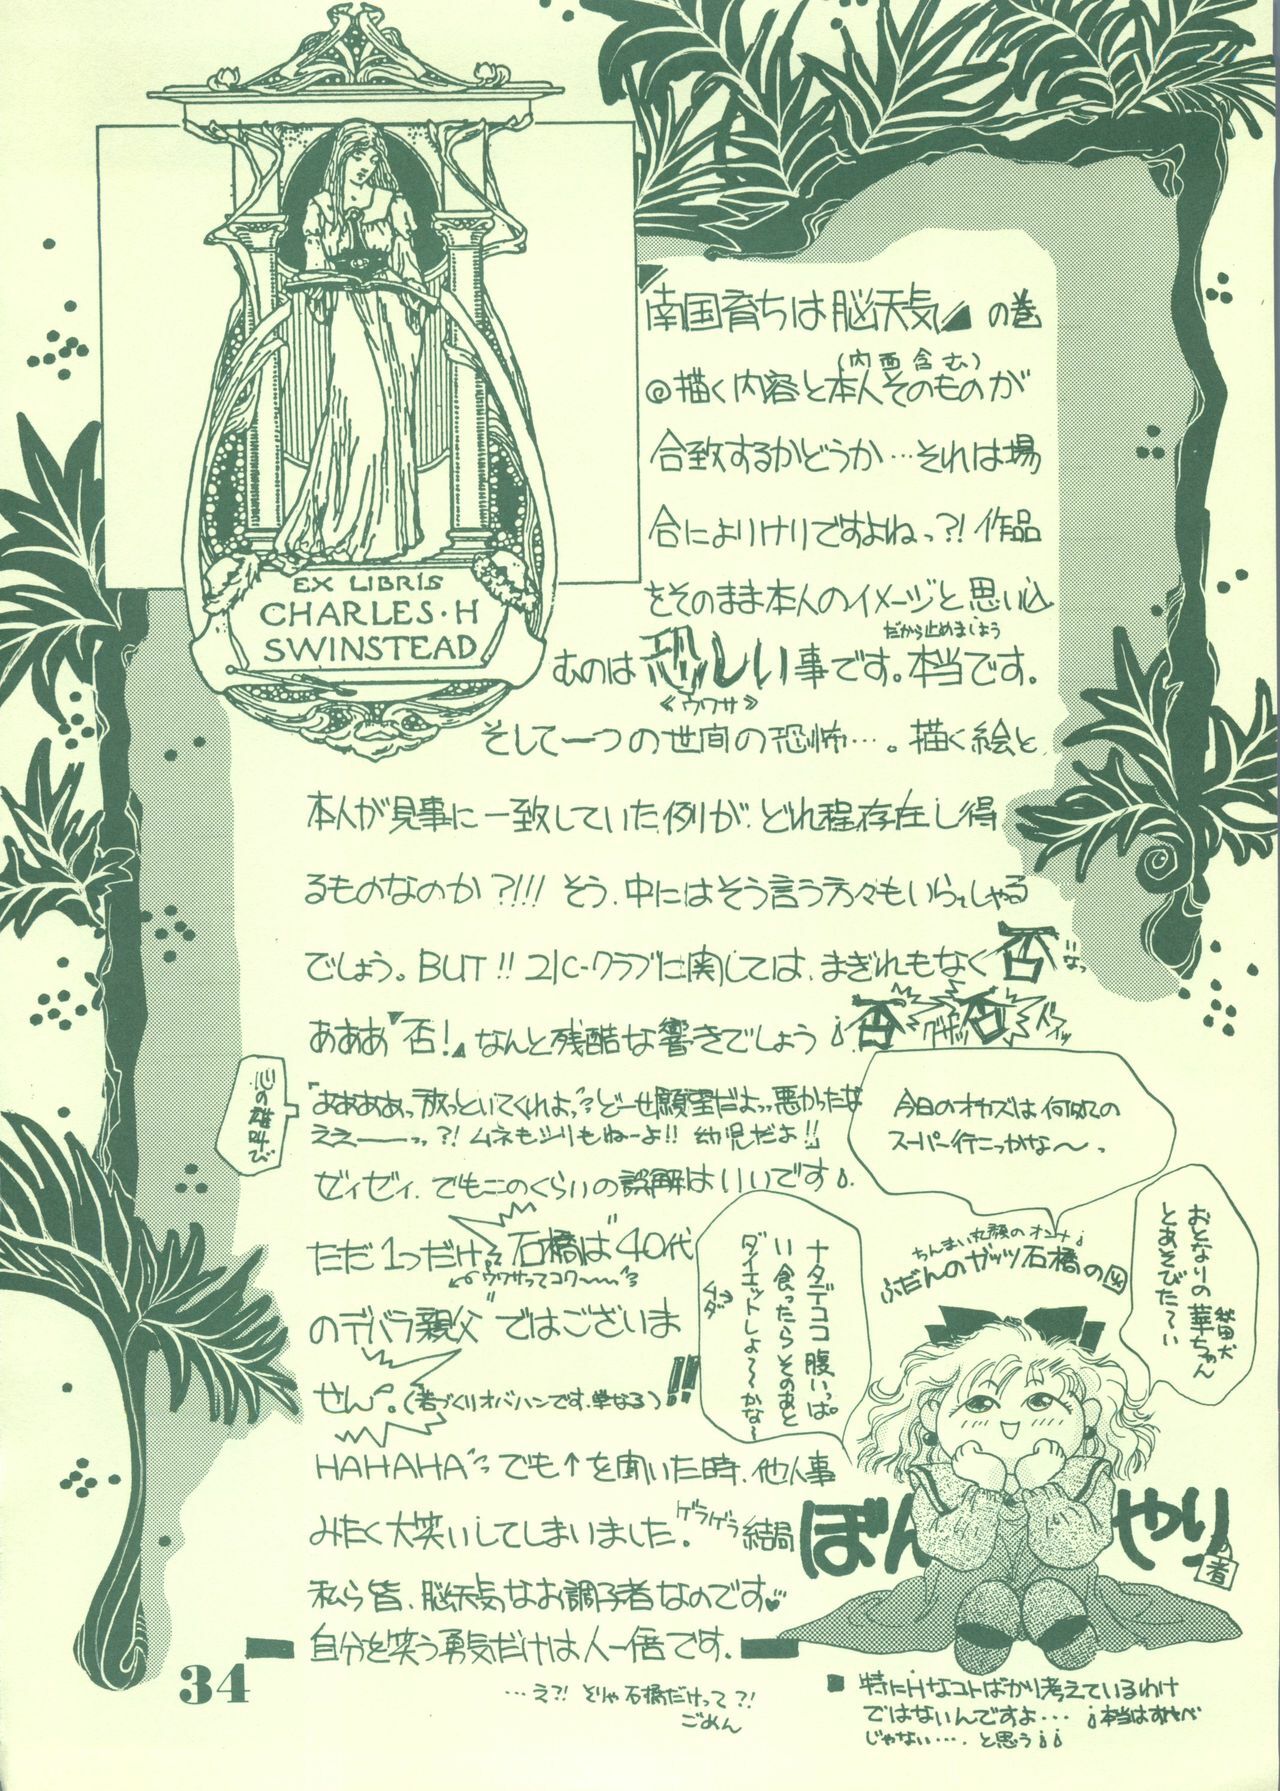 EX LIBRIS
CHARLES・H
SWINSTEAD
『南国育ちは脳天気』の巻
(内面含む)
◎描く内容と本人そのものが
合致するかどうか…それは場
合によりけりですよねっ?!作品
をそのまま本人のイメージと思い込
だから止めましょう
むのは恐しい事です。本当です。
《ウワサ》
そして一つの世間の恐怖…。描く絵と
本人が見事に一致していた例が、どれ程存在し得
るものなのか?!!! そう、中にはそう言う方々もいらっしゃる
でしょう。BUT!! ユノC-クラブに関しては、まぎれもなく否
なっ
あああ『否!』なんと残酷な響きでしょう
否 グサッ 否
心の雄叫び
『ああああっ放っといてくれよっ?どーせ願望だよっ悪かったな
ええーーっ?!ムネもシリもねーよ!! 幼児だよ!!
ゼィゼィ、でもこのくらいの誤解はいいです
ただ1つだけ、石橋は"40代
ウワサってコワ〜〜〜い
のデバラ親父"ではございま
せん。(若づくりオバハンです、単なる)!!
HAHAHA でも↑を聞いた時、他人事
みたく大笑いしてしまいました。ゲラゲラ 結局
私ら皆、脳天気なお調子者なのです♥
自分を笑う勇気だけは人一倍です。
…え?! そりゃ石橋だけって?!
ごめん
34
今日のオカズは何めての
スーパー行こっかな〜っ
ちんまい丸顔のオンナ
ふだんのガッツ石橋の図
おとなりの華ちゃん
秋田犬
とあそびた〜い
ナタデココ腹いっぱ
い食ったらそのあと
ダイエットしよ〜〜かな〜
ムダ
ぼんやり
の者
■特にHなコトばかり考えているわけ
ではないんですよ… 本当はすけべ
じゃない…、と思う